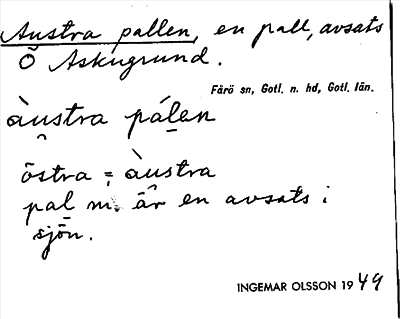 Austra pallen, en pall, avsats
Ö Askugrund.
Fårö sn, Gotl. n. hd, Gotl. län.
àu̯stra pálen
östra = àu̯stra
pal m. är en avsats i
sjön.
INGEMAR OLSSON 1949